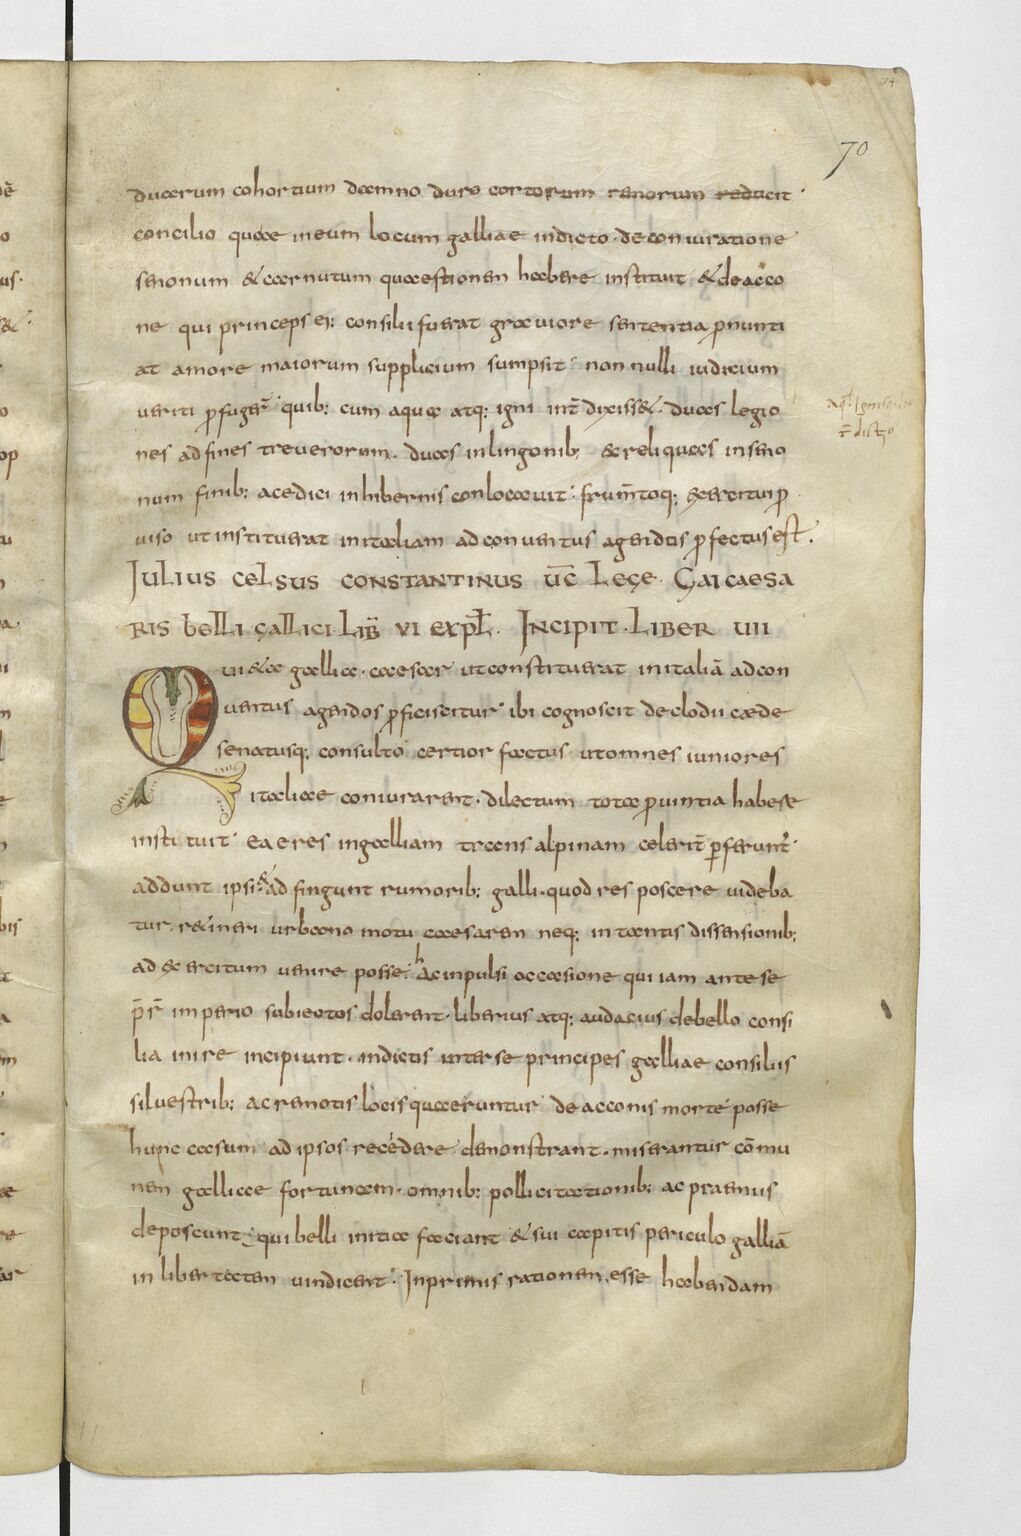 74
70
duarum cohortium damno duro cortorum remorum reducit·
concilio quae in eum locum galliae indicto· de coniuratione
senonum & carnutum quaestionem habere instituit & de acco
ne qui princeps ei; consilii fuerat grauiore sententia pnunti
at amore maiorum supplicium sumpsit· non nulli iudicium
ueriti pfuger̄· quib; cum aqua atq; igni int̄ dixiss&· duas legio
nes ad fines treverorum· duas in lingonib; & reliquas in seno
num finib; acedici in hibernis conlocauit· frum̄toq; exercitui p
uiso ut instituerat in italiam ad conuentus agendtis pfectus est.
JULIUS CELSUS CONSTANTINUS ŪC̄ LEGE· GAI CAESA
RIS BELLI GALLICI LIB̄ VI EXPL̄· INCIPIT· LIBER UII
QUI &a gallia· caesar ut constituerat in italiā ad con
uentus agendos pficiscitur· ibi cognoscit de clodii cæde
senatusq; consulto certior factus ut omnes iuniores
italiae coniurarent· dilectum tota puintia habere
instituit· ea e res in galliam trans alpinam celerit̄ pferunt̄·
addunt ipsi & ad fingunt rumorib; galli· quod res poscere uideba
tur· r&ineri urbano motu caesarem neq; in tantis dissensionib;
ad exercitum uenire posse· hAc inpulsi occasione qui iam ante se
p̄r̄ imperio subiectos dolerent· liberius atq; audacius de bello consi
lia inire incipiunt· indictis inter se principes galliae consiliis
siluestrib; ac remotis locis quaeruntur· de acconis morte posse
hunc casum ad ipsos recedere demonstrant· miserantur cōmu
nem galliae fortunam· omnib; pollicitationib; ac praemiis
deposcunt· qui belli initia faciant & sui capitis periculo galliā
in libertatem uindicent· Inprimis rationem esse habendam